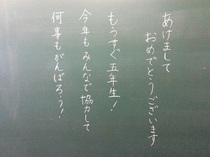 あけまして
おめでとうございます
もうすぐ五年生！
今年もみんなで協力して
何事もがんばろう！